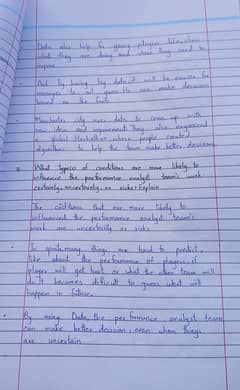 Data also help the young players to know how
what they are doing and what they need to
improve
And by having big data it will be easier for
manager to set goals he can make decisions
based on the fact.
Manchester city uses data to come up with
new idea and improvement. They also organized
a global Hackathon where people created
algorithms to help the team make better decisions.
What type(s) of conditions are more likely to
influence the performance analyst team's work
certainty, uncertainty, or risk? Explain
The conditions that are more likely to
influenced the performance analyst team's
work are uncertainty or risk.
In sports many things are hard to predict,
like about the performance of players, if
player will get hurt or what the other team will
do. It becomes difficult to guess what will
happen in future.
By using Data, the performance analyst team
can make better decision, even when things
are uncertain